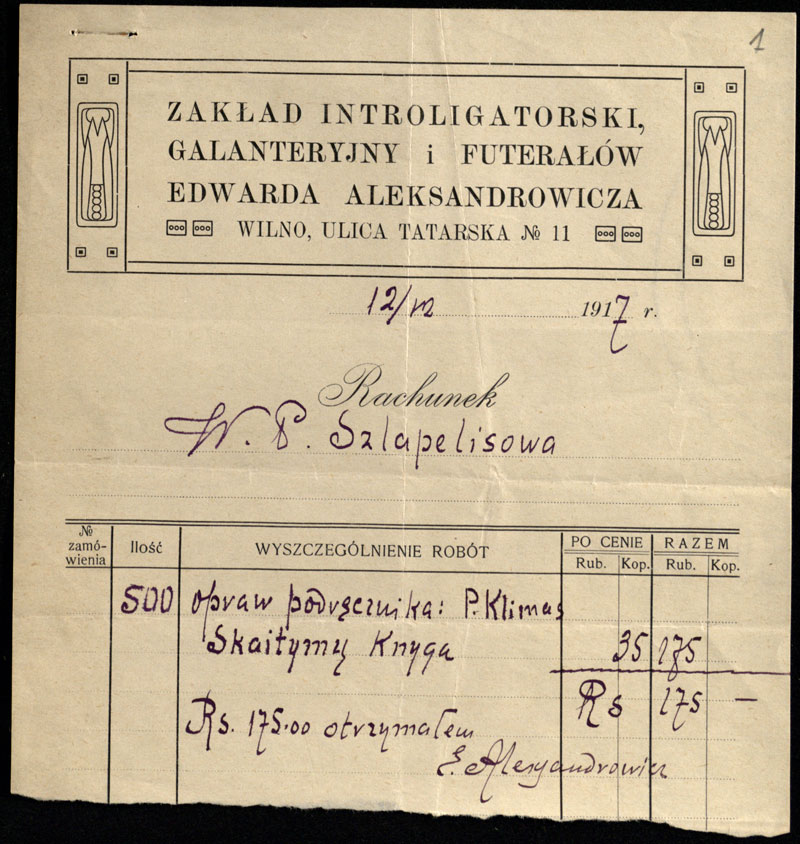 1
ZAKŁAD INTROLIGATORSKI,
GALANTERYJNY i FUTERAŁÓW
EDWARDA ALEKSANDROWICZA
WILNO, ULICA TATARSKA № 11
12/12 1917 r.
Rachunek
W. P. Szlapelisowa
№ zamó-wienia Ilość WYSZCZEGÓLNIENIE ROBÓT PO CENIE RAZEM
Rub. Kop. Rub. Kop.
500 opraw podręcznika: P. Klimas
Skaitymų Knyga 35 175
Rs 175 —
Rs. 175.00 otrzymałem
E. Alexandrowicz